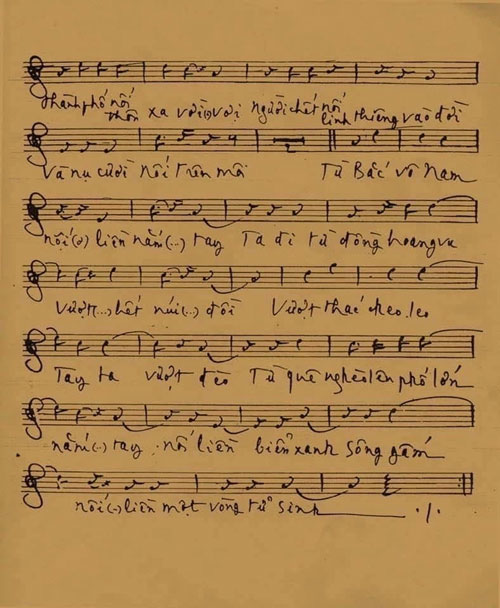 Thành phố nối thôn xa vời(ờ)vợi người chết nối linh thiêng vào đời
Và nụ cười nối trên môi Từ Bắc vô Nam
nối(ớ) liền nắm(...) tay Ta đi từ đồng hoang vu
Vượt(...)hết núi(...) đồi Vượt thác cheo leo
Tay ta vượt đèo Từ quê nghèo lên phố lớn
nắm(-) tay nối liền biển xanh sông gấm
nối(-)liền một vòng tử sinh